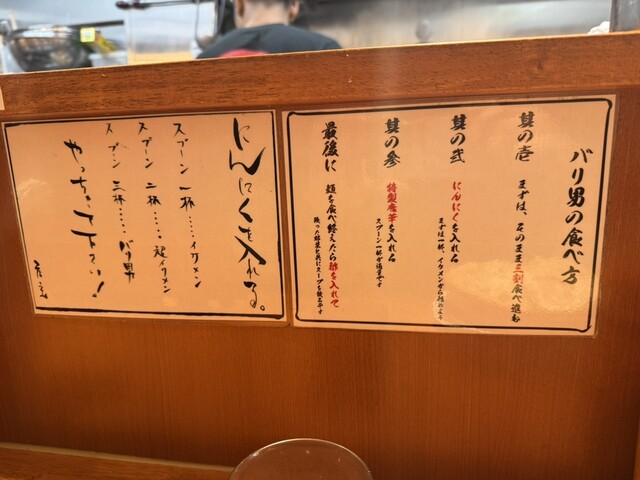 バリ男の食べ方
其の壱
まずは、そのまま三割食べ進む
其の弐
にんにくを入れる
まずは一杯、イケメンから始めよう
其の参
特製唐華を入れる
スプーン一杯が適量です
最後に
麺を食べ終えたら酢を入れて
残った野菜と共にスープを飲み干す
にんにくを入れる。
スプーン 一杯‥‥‥イケメン
スプーン 二杯‥‥‥超イケメン
スプーン 三杯‥‥‥バリ男
やっちゃって下さい!